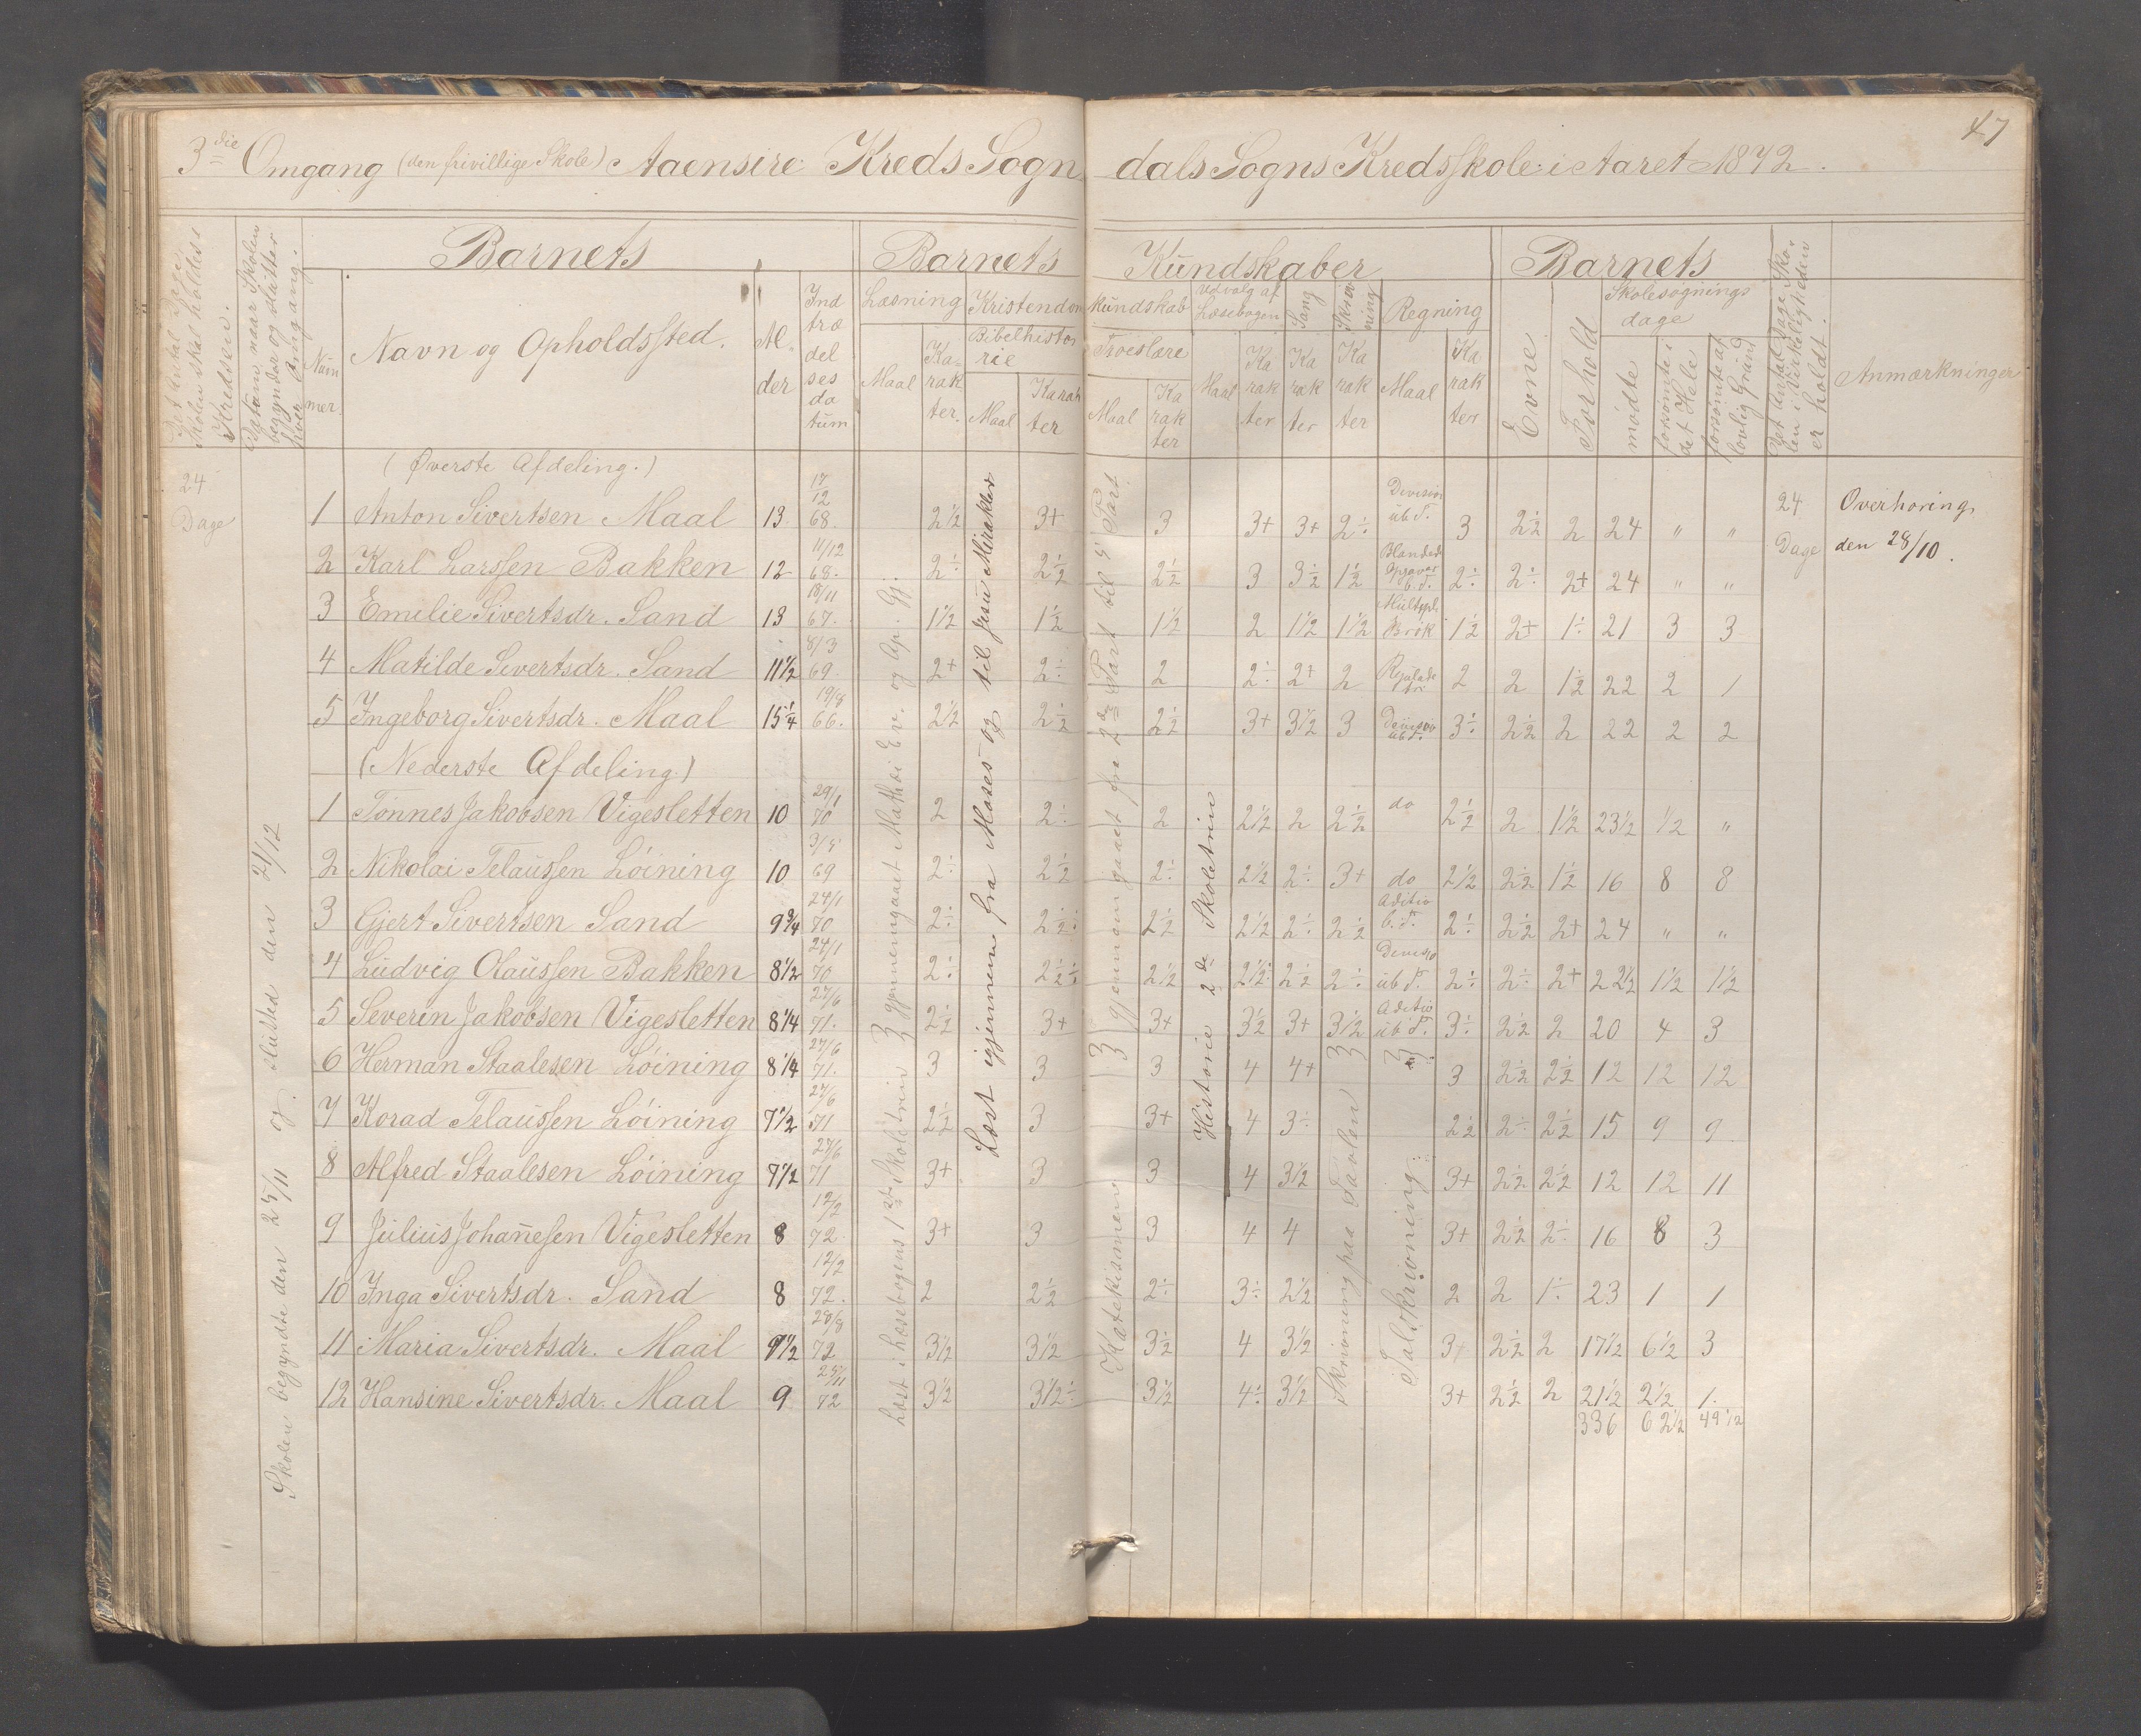 47
3die Omgang (den frivillige Skole) Aaensire Kreds Sogndals Sogns Kredsskole i Aaret 1872.
Det Antal Dage Skolen skal holdes i Kredsen.
Datum, naar Skolen begynder og slutter hver Omgang.
Barnets
Nummer
Navn og Opholdssted.
Alder
Indtrædelsesdatum
Barnets Kundskaber
Læsning
Maal
Karakter.
Kristendomskundskab
Bibelhistorie
Maal
Karakter
Troeslære
Maal
Karakter
Udvalg af Læsebogen
Maal
Karakter
Sang
Karakter
Skrivning
Karakter
Regning
Maal
Karakter
Barnets
Evne
Forhold
Skolesøgningsdage
mødte
forsømte i det Hele
forsømte af lovlig Grund
Det Antal Dage Skolen i Virkeligheden er holdt.
Anmærkninger
24 Dage
Skolen begyndte den 25/11 og slutted den 21/12
Læst i Læsebogens 1ste Skoletrin 3 gjennemgaaet Mathæi Ev. og Ap. Gj.
Læst igjennem fra Moses og til Jesu Mirakler
Katekismen 3 gjennemgaaet fra 2den Part til 5 Part
Historie 2de Skoletrin
Skrivning paa Tavlen
Talskrivning
(Øverste Afdeling.)
1 Anton Sivertsen Maal 13 17/12 68. 2½ 3+ 3 3+ 3+ 2÷ Division ub. T. 3 2½ 2 24 " " 24 Dage Overhøring den 28/10.
2 Karl Larssen Bakken 12 11/12 68. 2÷ 2½ 2½ 3 3½ 1½ Blandede Opgaver b. T. 2÷ 2÷ 2+ 24 " "
3 Emilie Sivertsdr. Sand 13 18/11 67. 1½ 1½ 1½ 2 1½ 1½ Multipl. Brøk 1½ 2+ 1÷ 21 3 3
4 Matilde Sivertsdr. Sand 11½ 8/3 69 2+ 2÷ 2 2÷ 2+ 2 Regulade tri 2 2 1½ 22 2 1
5 Ingeborg Sivertsdr. Maal 15¼ 19/8 66. 2½ 2½ 2½ 3+ 3½ 3 Division ub. T. 3÷ 2½ 2 22 2 2
(Nederste Afdeling)
1 Tønnes Jakobsen Vigesletten 10 29/1 70 2 2÷ 2 2½ 2 2½ do 2½ 2 1½ 23½ ½ "
2 Nikolai Telaussen Løining 10 3/5 69 2÷ 2½ 2÷ 2½ 2÷ 3+ do 2½ 2½ 1½ 16 8 8
3 Gjert Sivertsen Sand 9¾ 24/1 70 2÷ 2½÷ 2½ 2½ 2÷ 2½ Aditio b. T. 2÷ 2½ 2+ 24 " "
4 Ludvig Olaussen Bakken 8½ 24/1 70 2÷ 2½÷ 2½ 2½÷ 2½ 2÷ Division ub. T. 2÷ 2÷ 2+ 22½ 1½ 1½
5 Severin Jakobsen Vigesletten 8¼ 27/6 71. 2½ 3+ 3+ 3½ 3+ 3½ Aditio ub. T. 3÷ 2½ 2 20 4 3
6 Herman Staalesen Løining 8¼ 27/6 71. 3 3 3 4 4+ 3 2½ 2½ 12 12 12
7 Korad Telaussen Løining 7½ 27/6 71 2½ 3 3+ 4 3÷ 2½ 2÷ 2½ 15 9 9
8 Alfred Staalesen Løining 7½ 27/6 71 3+ 3 3 4 3½ 3+ 2½ 2½ 12 12 11
9 Julius Johannesen Vigesletten 8 12/2 72 3+ 3 3 4 4 3+ 2½ 2÷ 16 8 3
10 Inga Sivertsdr. Sand 8 12/2 72. 2 2½ 2÷ 3÷ 2½ 2 2 1÷ 23 1 1
11 Maria Sivertsdr. Maal 9½ 28/8 72 3½ 3½ 3½ 4 3½ 3+ 2½ 2 17½ 6½ 3
12 Hansine Sivertsdr. Maal 9 25/11 72 3½ 3½÷ 3½ 4÷ 3½ 3+ 2½ 2 21½ 2½ 1.
336 62½ 49½